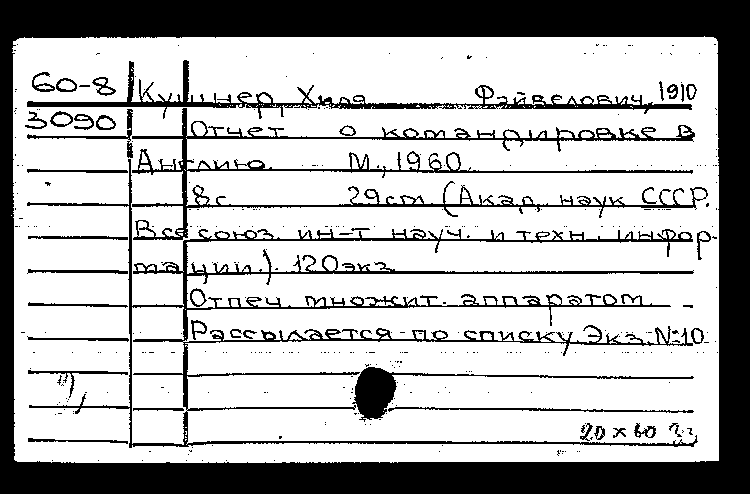 60-8 Кушнер, Хиля Фэйвелович, 1910
3090 Отчет о командировке в
Англию. М., 1960.
8с. 29cm. (Акад. наук СССР.
Всесоюз. ин-т науч. и техн. инфор-
мации.). 120экз.
Отпеч. множит. аппаратом.
Рассылается по списку. Экз. №10
20 x 60